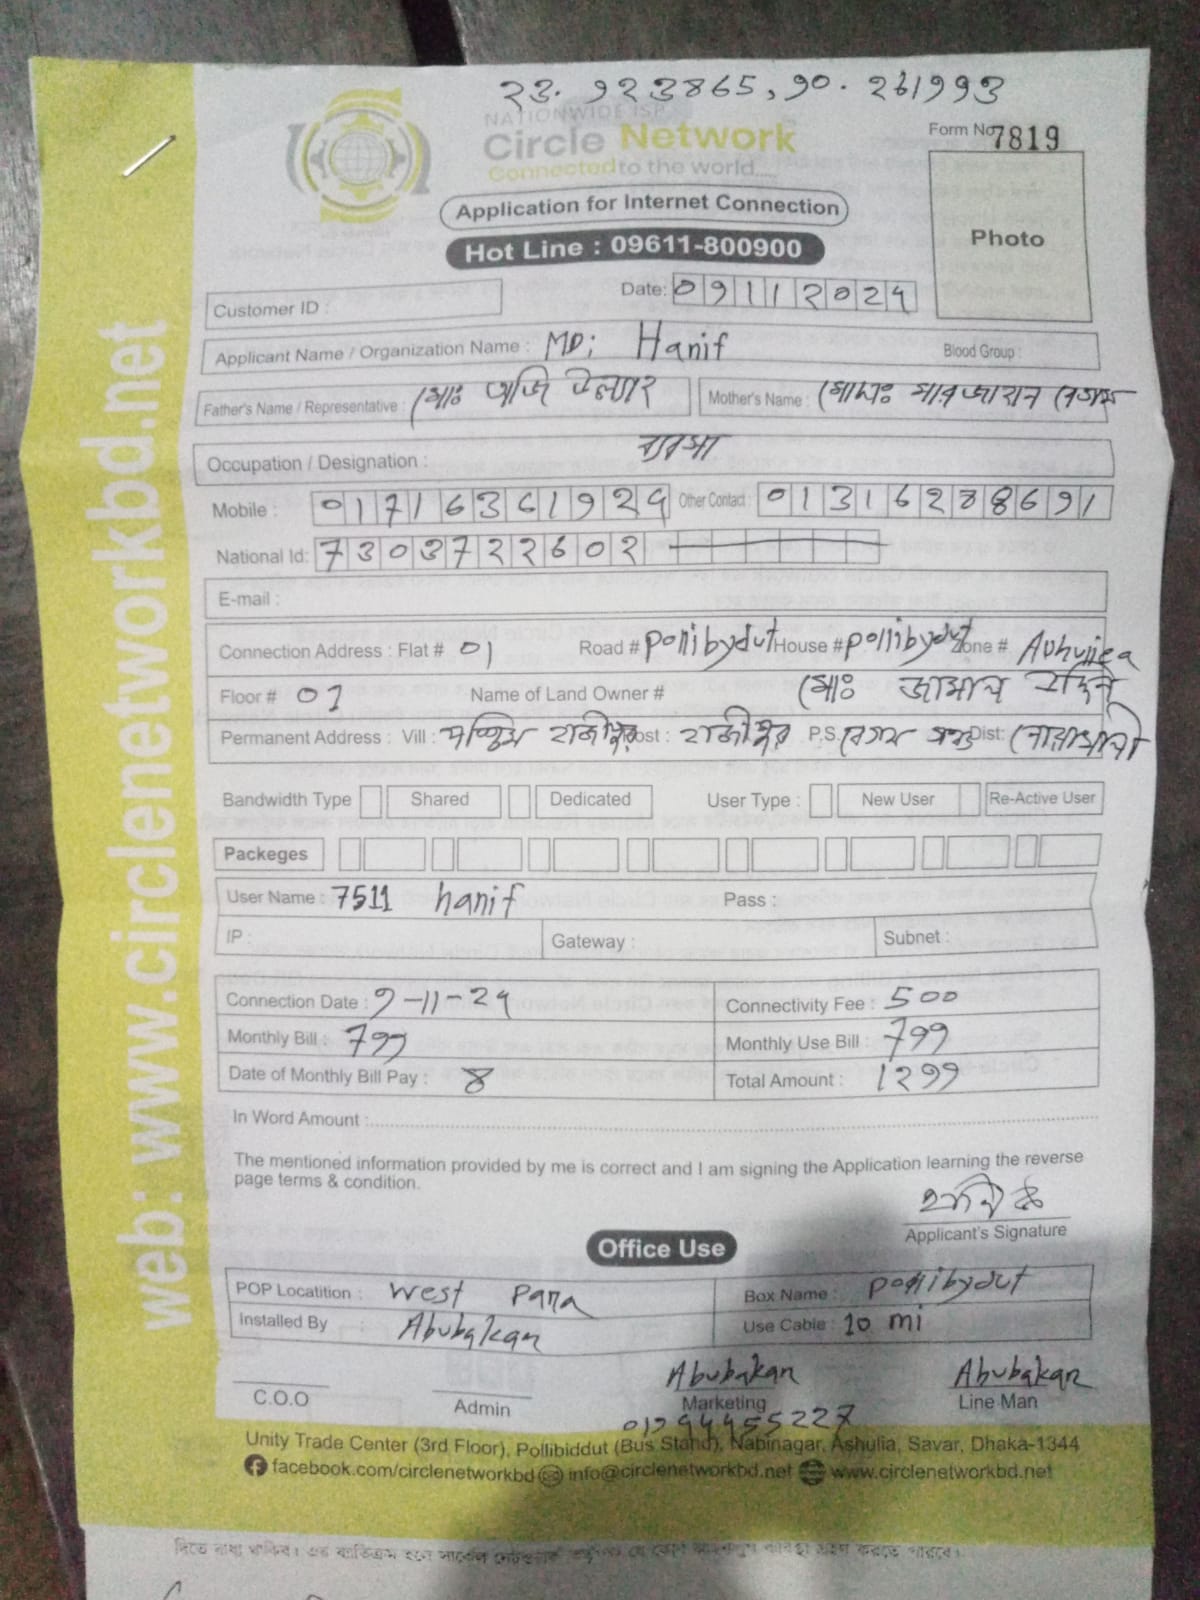 23.923865, 90.261993
NATIONWIDE ISP
Circle Network
Connected to the world....
Form No 7819
Photo
Application for Internet Connection
Hot Line : 09611-800900
Customer ID :
Date: 09112024
Applicant Name / Organization Name : MD; Hanif Blood Group :
Father's Name / Representative : মোঃ অজি উল্যাহ Mother's Name : মোসাঃ
Occupation / Designation : ব্যবসা
Mobile : 01716361924 Other Contact : 01316288691
National Id: 7303722602
E-mail :
Connection Address : Flat # 01 Road # pollibydut House # pollibydut Zone #
Floor # 01 Name of Land Owner # মোঃ জামাল উদ্দিন
Permanent Address : Vill : পশ্চিম রাজীপুর Post : রাজীপুর P.S. বেগম গঞ্জ Dist: নোয়াখালী
Bandwidth Type Shared Dedicated User Type : New User Re-Active User
Packeges
User Name : 7511 hanif Pass :
IP : Gateway : Subnet :
Connection Date : 9-11-24 Connectivity Fee : 500
Monthly Bill : 799 Monthly Use Bill : 799
Date of Monthly Bill Pay : 8 Total Amount : 1299
In Word Amount :
The mentioned information provided by me is correct and I am signing the Application learning the reverse
page terms & condition.
হানিফ
Applicant's Signature
Office Use
POP Locatition : West Para Box Name : pollibydut
Installed By : Abubakar Use Cable : 10 mi
Abubakar Abubakar
C.O.O Admin Marketing Line Man
Unity Trade Center (3rd Floor), Pollibiddut (Bus Stand), Nabinagar, Ashulia, Savar, Dhaka-1344
facebook.com/circlenetworkbd info@circlenetworkbd.net www.circlenetworkbd.net
web: www.circlenetworkbd.net